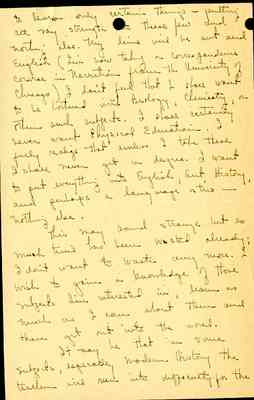 to learn only certain things - putting
all my strength to these few and
nothing else. My line will be art and
English (I'm now taking a correspondence
course in Narration from the University of
Chicago). I don't feel that I shall want
to be bothered with Biology, Chemistry, or
other such subjects. I shall certainly
never want Physical Education. I
fully realize that unless I take these
I shall never get a degree. I want
to put everything in English, Art History,
and perhaps a language or two —
nothing else.
This may sound strange but so
much time has been wasted already;
I don't want to waste any more. I
wish to gain a knowledge of those
subjects I'm interested in, learn as
much as I can about them and
then get out into the world.
It may be that in some
subjects, especially modern history the
teachers will run into difficulty for the